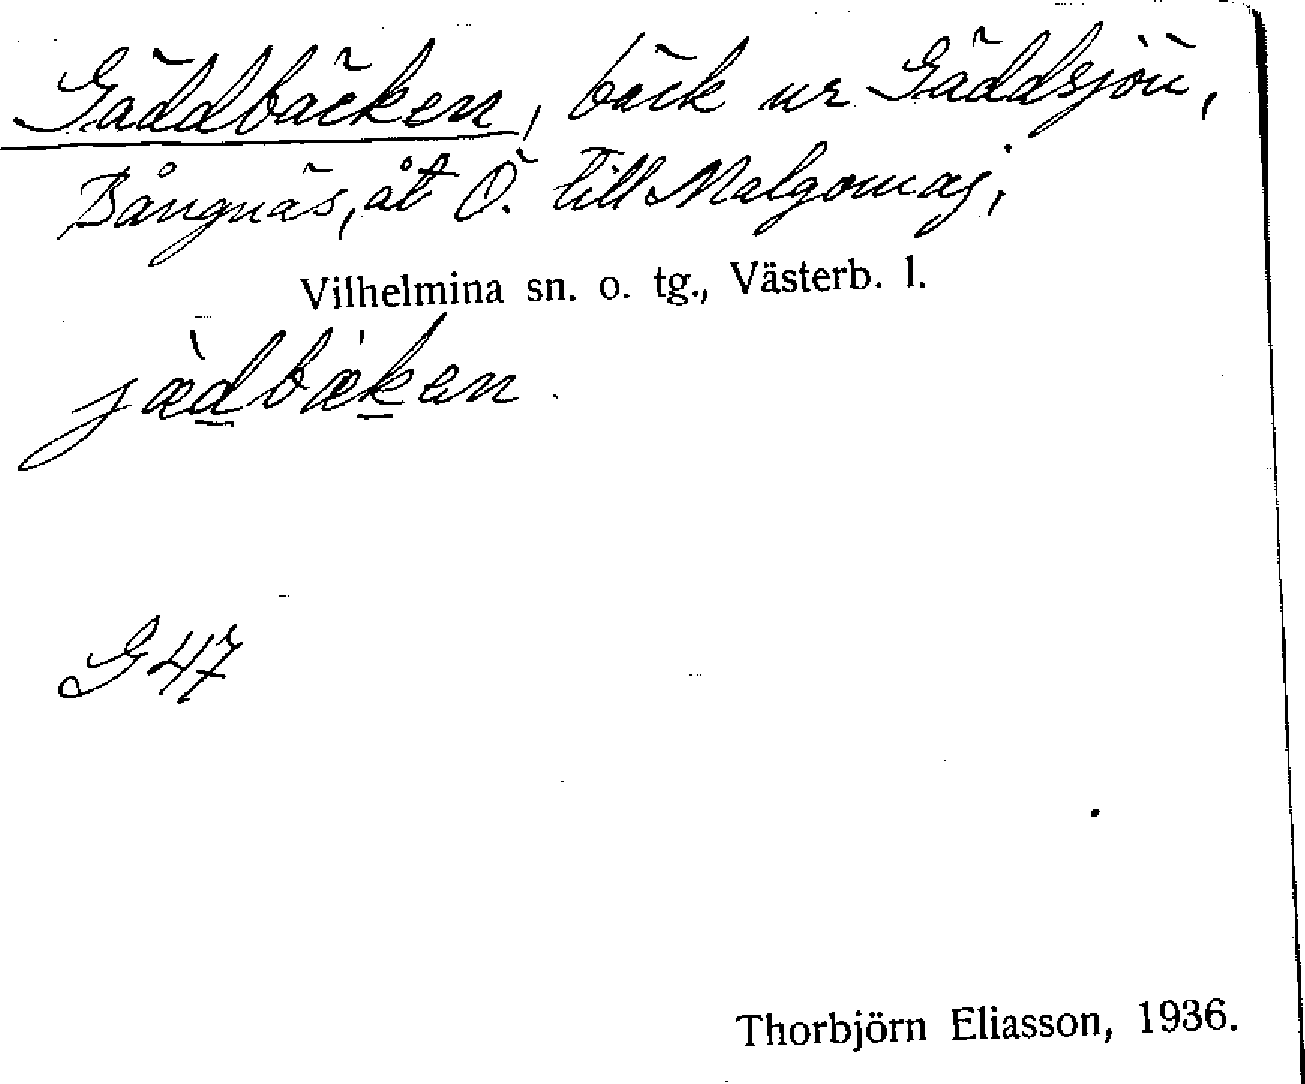 Gäddbäcken, bäck ur Gäddsjön,
Bångnäs, åt Ö. till Malgomaj,
Vilhelmina sn. o. tg., Västerb. l.
jæ̀dbæ̍ken.
G 47
Thorbjörn Eliasson, 1936.